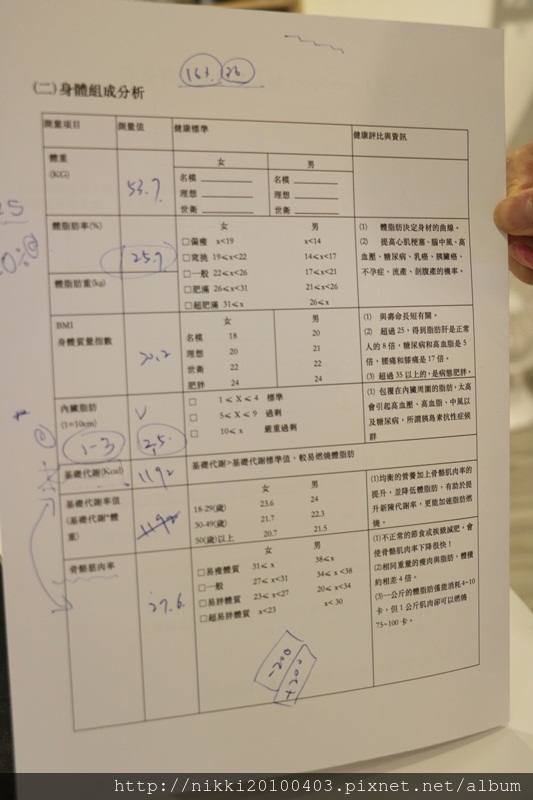 163. 26
(二)身體組成分析
測量項目 測量值 健康標準 健康評比與資訊
女 男
體重
(KG)
53.7
名模 名模
理想 理想
世衛 世衛
體脂肪率(%)
25.7
女 男
□偏瘦 x<19 x<14
□窕挑 19≤x<22 14≤x<17
□一般 22≤x<26 17≤x<21
□肥滿 26≤x<31 21≤x<26
□超肥滿 31≤x 26≤x
(1) 體脂肪決定身材的曲線。
(2) 提高心肌梗塞、腦中風、高
血壓、糖尿病、乳癌、胰臟癌、
不孕症、流產、剖腹產的機率。
體脂肪重(kg)
BMI
身體質量指數
20.2
女 男
名模 18 20
理想 20 21
世衛 22 22
肥胖 24 24
(1) 與壽命長短有關。
(2) 超過 25,得到脂肪肝是正常
人的 8 倍,糖尿病和高血脂是 5
倍,腰痛和膝痛是 17 倍。
(3) 超過 35 以上的,是病態肥胖。
內臟脂肪
(1=10cm)
1-3
2.5
□ 1≤X≤4 標準
□ 5≤X≤9 過剩
□ 10≤x 嚴重過剩
(1) 包覆在內臟周圍的脂肪,太高
會引起高血壓、高血脂、中風以
及糖尿病,所謂胰島素抗性症候
群
基礎代謝(Kcal)
1192
基礎代謝>基礎代謝標準值,較易燃燒體脂肪
基礎代謝率值
(基礎代謝*體
重)
女 男
18-29(歲) 23.6 24
30-49(歲) 21.7 22.3
50(歲)以上 20.7 21.5
(1)均衡的營養加上骨骼肌肉率的
提升,並降低體脂肪,有助於提
升新陳代謝率,更能加速脂肪燃
燒。
骨骼肌肉率
27.6
女 男
□易瘦體質 31≤x 38≤x
□一般 27≤x<31 34≤x<38
□易胖體質 23≤x<27 20≤x<34
□超易胖體質 x<23 x<30
(1)不正常的節食或挨餓減肥,會
使骨骼肌肉率下降很快!
(2)相同重量的瘦肉與脂肪,體積
約相差 4 倍。
(3)一公斤的體脂肪僅能消耗4~10
卡,但 1 公斤肌肉卻可以燃燒
75~100 卡。
-200
+200
http://nikki20100403.pixnet.net/album